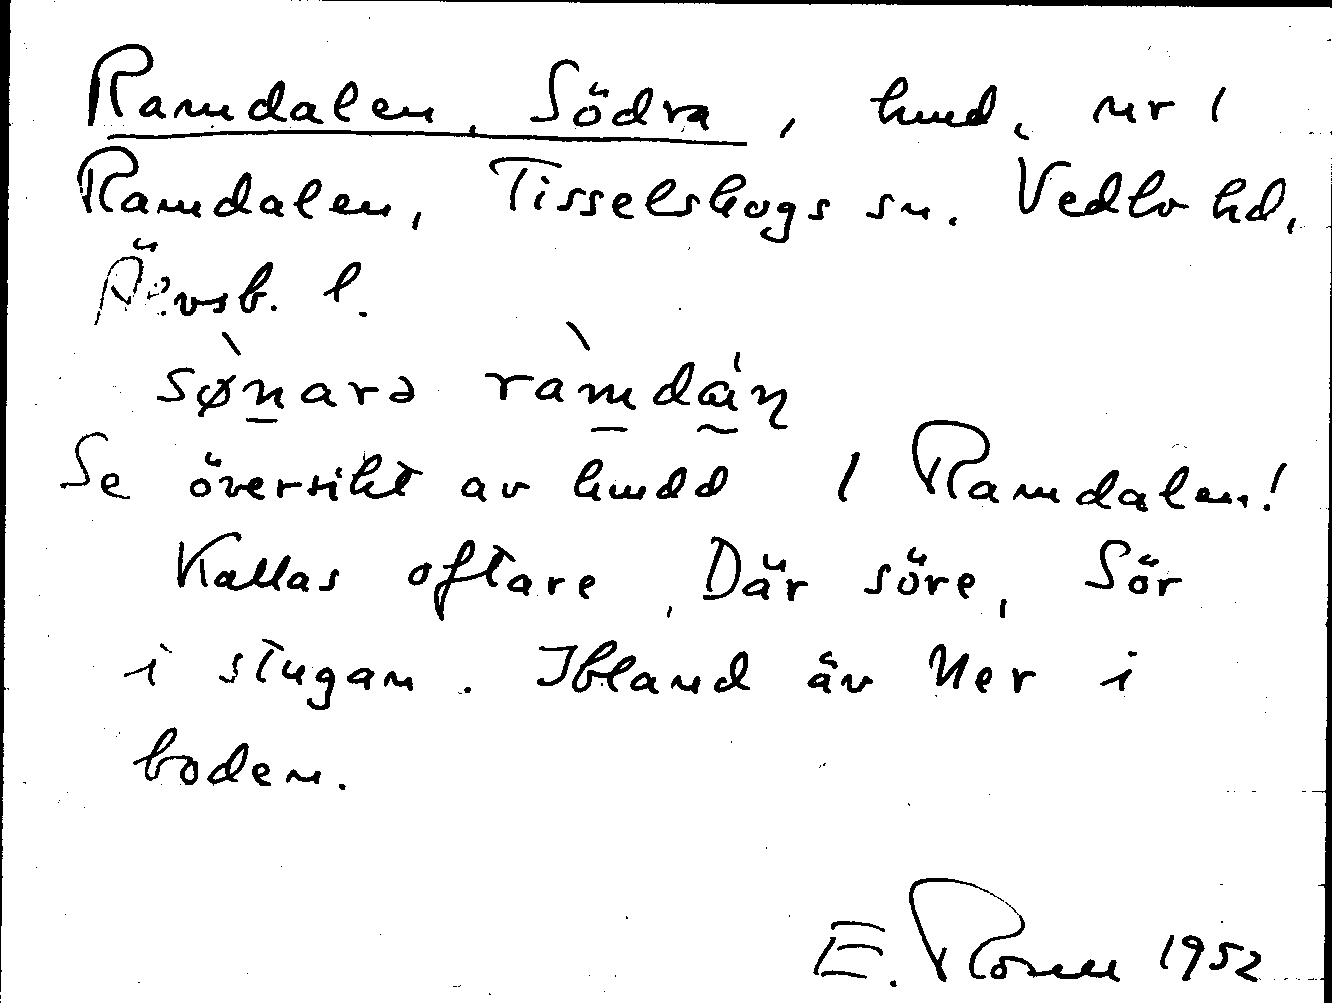 Ramdalen, Södra, hmd. nr 1
Ramdalen, Tisselskogs sn. Vedbo hd,
Älvsb. l.
sø̀n̲arə ràm̲dá̰ɳ
Se översikt av hmdd 1 Ramdalen!
Kallas oftare, Där söre, Sör
i stugan. Ibland äv Ner i
boden.
E. Rosell 1952